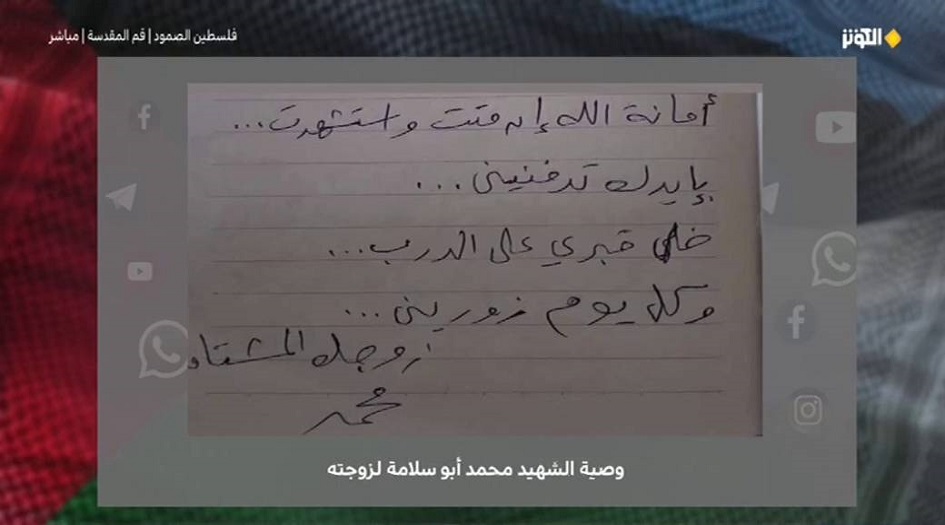 فلسطين الصمود | قم المقدسة | مباشر
الكوثر
أمانة الله إن متت واستشهدت...
بإيدك تدفنيني...
خلي قبري على الدرب...
وكل يوم زوريني...
زوجك المشتاق
محمد
وصية الشهيد محمد أبو سلامة لزوجته